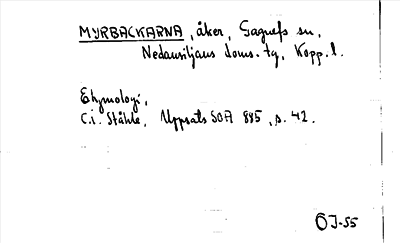 MYRBACKARNA, åker, Gagnefs sn,
Nedansiljans doms. tg, Kopp. l.
Etymologi,
C.i. Ståhle, Uppsats SOA 885, s. 42.
ÖJ-55